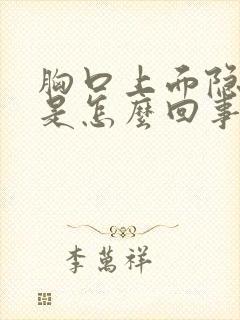 胸口上面隐
是怎麼回事
李萬祥